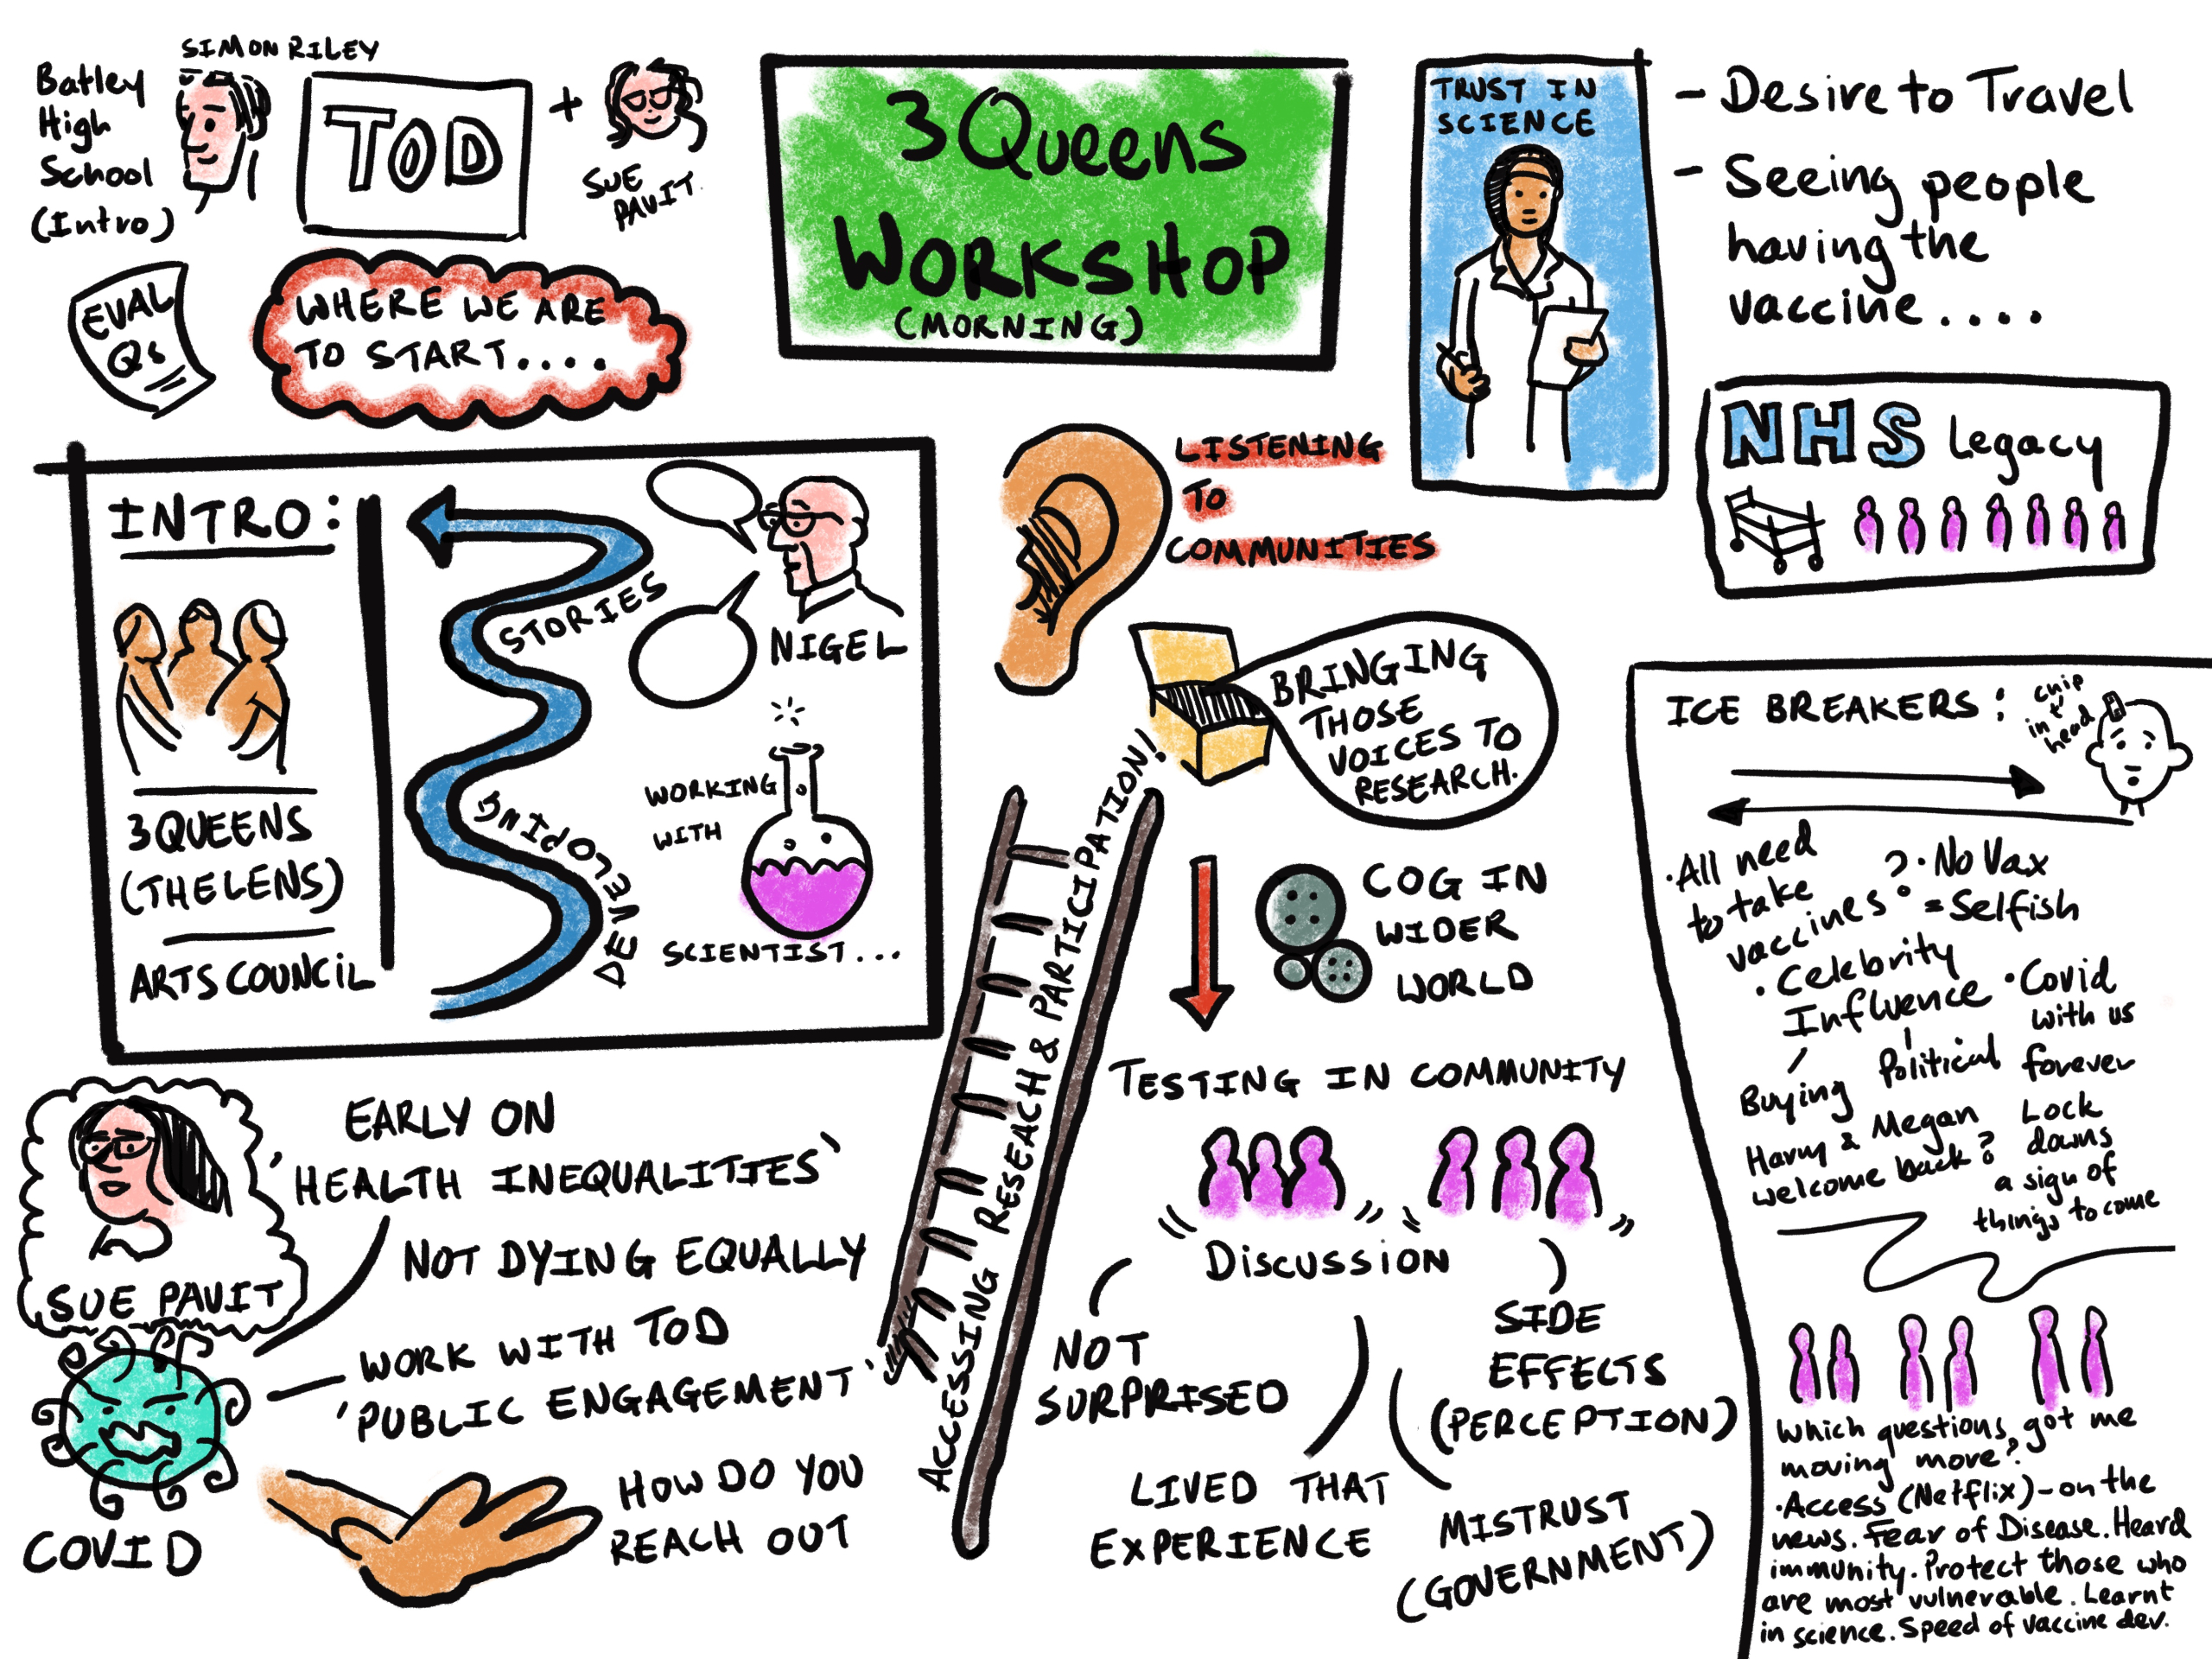 SIMON RILEY
Batley
High
School
(Intro)
TOD
+
SUE
PAVIT.
EVAL
Qs
WHERE WE ARE
TO START....
3 Queens
WORKSHOP
(MORNING)
TRUST IN
SCIENCE
- Desire to Travel
- Seeing people
having the
vaccine....
NHS Legacy
INTRO:
3 QUEENS
(THE LENS)
ARTS COUNCIL
DEVELOPING
STORIES
NIGEL
WORKING
WITH
SCIENTIST...
LISTENING
TO
COMMUNITIES
BRINGING
THOSE
VOICES TO
RESEARCH.
ACCESSING RESEACH & PARTICIPATION!
COG IN
WIDER
WORLD
TESTING IN COMMUNITY
DISCUSSION
NOT
SURPRISED
LIVED THAT
EXPERIENCE
SIDE
EFFECTS
(PERCEPTION)
MISTRUST
(GOVERNMENT)
SUE PAVIT
COVID
EARLY ON
'HEALTH INEQUALITIES'
NOT DYING EQUALLY
WORK WITH TOD
'PUBLIC ENGAGEMENT'
HOW DO YOU
REACH OUT
ICE BREAKERS:
chip
int'
head
· All need
to take
vaccines?
· No Vax
= Selfish
· Celebrity
Influence
Buying
Political
Harry & Megan
welcome back?
· Covid
with us
forever
Lock
downs
a sign of
things to come
Which questions got me
moving more?
· Access (Netflix) - on the
news. Fear of Disease. Heard
immunity. Protect those who
are most vulnerable. Learnt
in science. Speed of vaccine dev.